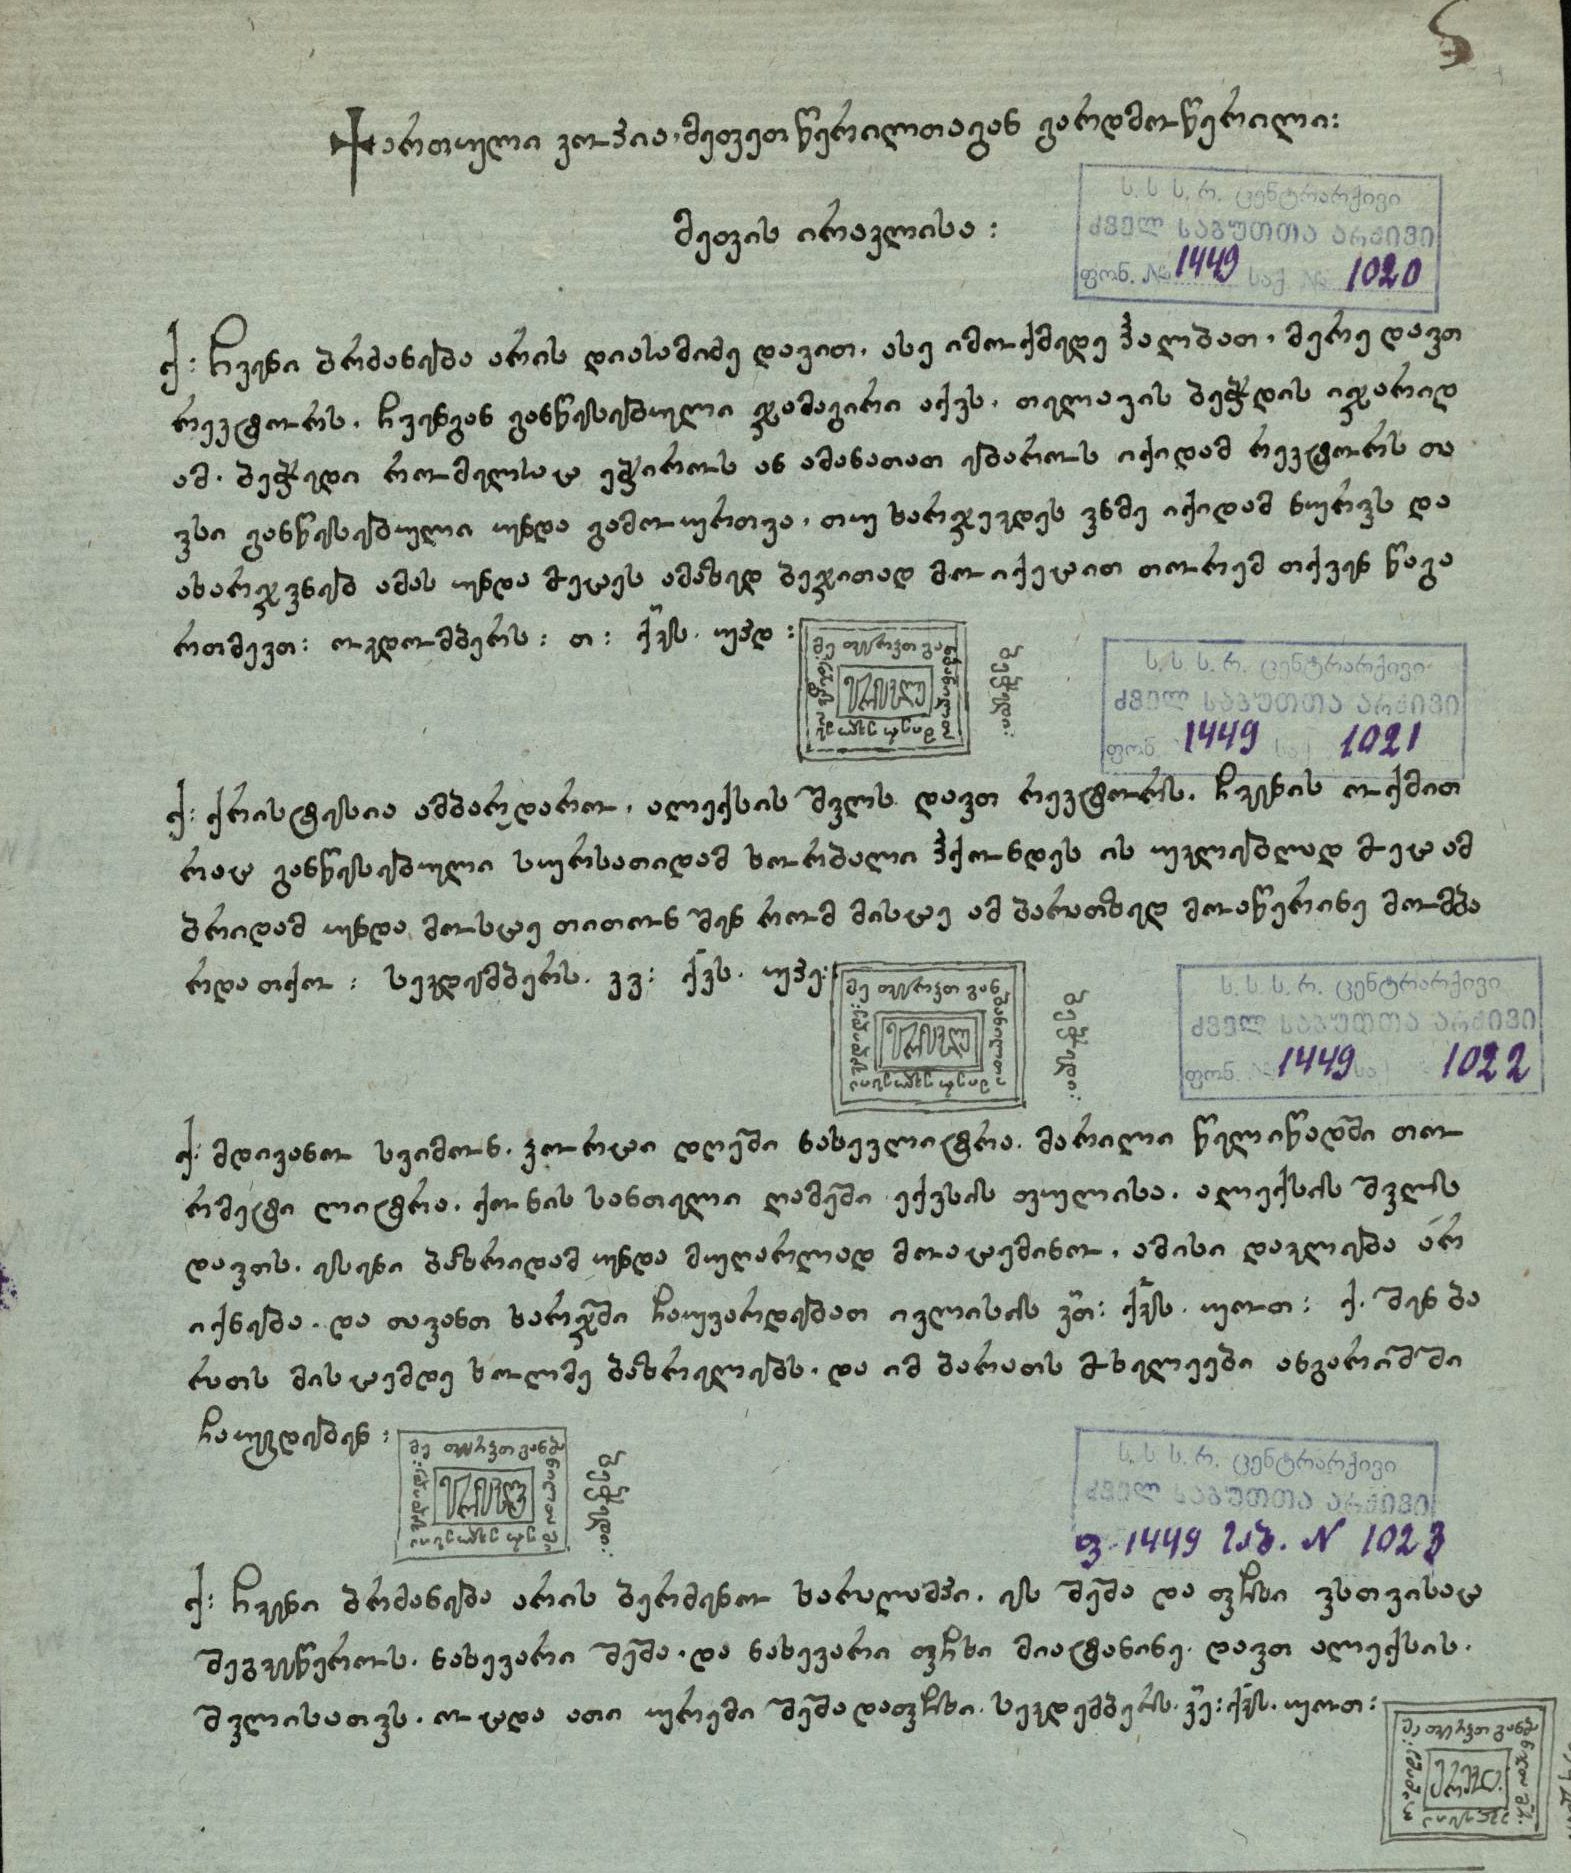 ქართული კოპია, მეფეთ წერილთაგან გარდმოწერილი:
მეფის ირაკლისა:
ს. ს. ს. რ. ცენტრარქივი
ძველ საბუთთა არქივი
ფონ. № 1449 საქ. № 1020
ქ: ჩვენი ბრძანება არის დიასამიძე დავით, ასე იმოქმედე პალბათ, მერე დავთ
რექტორს, ჩვენგან განწესებული ჯამაგირი აქვს, თელავის ბეჭდის იჯარიდ
ამ. ბეჭედი რომელსაც ეჭიროს ან ამანათათ ებაროს იქიდამ რექტორს თა
ვსი განწესებული უნდა გამოურთვა, თუ ხარჯევდეს ვნმე იქიდამ ნურვს და
ახარჯვნებ ამას უნდა მეცეს ამაზედ ბეჯითად მოიქეცით თორემ თქვენ წაგა
რთმევთ: ოკდომბერს: თ: ქკს. უპდ:
ბეჭედი:
ს. ს. ს. რ. ცენტრარქივი
ძველ საბუთთა არქივი
ფონ. 1449 სა 1021
ქ: ქრისტესია ამბარდარო, ალექსის შვლს დავთ რექტორს, ჩვენის ოქმით
რაც განწესებული სურსათიდამ ხორბალი ჰქონდეს ის უკლებლად მეც ამ
ბრიდამ უნდა მოსცე თითონ შენ რომ მისცე ამ ბარათზედ მოაწერინე მომბა
რდა თქო: სეკდემბერს. კვ: ქკს. უპე:
ბეჭედი:
ს. ს. ს. რ. ცენტრარქივი
ძველ საბუთთა არქივი
ფონ. № 1449 სა 1022
ქ: მდივანო სვიმონ. ხორცი დღეში ნახევლიტრა. მარილი წელიწადში თო
რმეტი ლიტრა. ქონის სანთელი ღამეში ექვსის ფულისა. ალექსის შვლს
დავთს. ესენი ბაზრიდამ უნდა მუღარლად მოაცემინო, ამისი დაკლება არ
იქნება. და თავანთ ხარჯში ჩაუვარდებათ ივლისის კთ: ქკს. უოთ: ქ. შენ ბა
რათს მისცემდე ხოლმე ბაზრელებს. და იმ ბარათს მხელეები ანგარიშში
ჩაუგდებენ:
ბეჭედი:
ს. ს. ს. რ. ცენტრარქივი
ძველ საბუთთა არქივი
ფ. 1449 საბ. N 1023
ქ: ჩვენი ბრძანება არის ბერმენო ხარალამპი. ეს შეშა და ფჩხი ვსთვისაც
შეგვეწეროს. ნახევარი შეშა. და ნახევარი ფჩხი მიატანინე. დავთ ალექსის.
შვლისათვს. ოცდა ათი ურემი შეშა დაფჩხი. სეკდემბერს. კე: ქკს. უოთ: